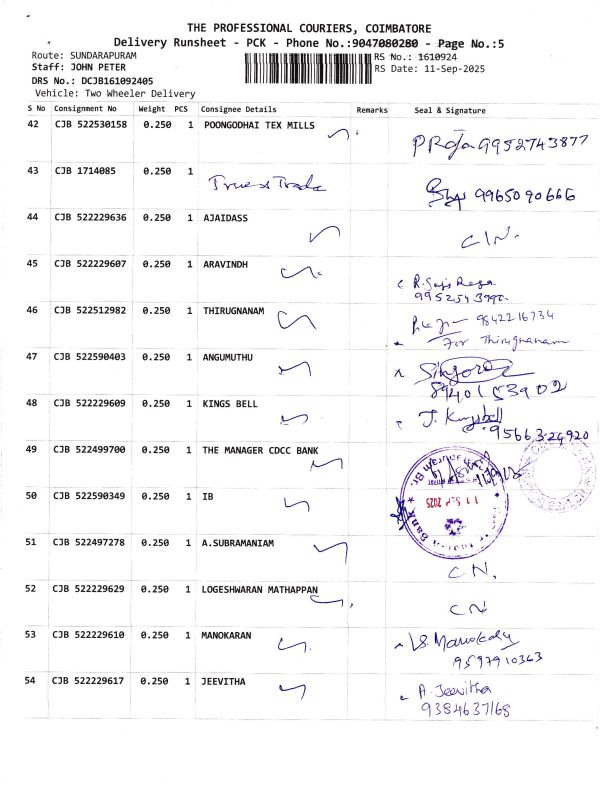 THE PROFESSIONAL COURIERS, COIMBATORE
Delivery Runsheet - PCK - Phone No.:9047080280 - Page No.:5
Route: SUNDARAPURAM RS No.: 1610924
Staff: JOHN PETER RS Date: 11-Sep-2025
DRS No.: DCJB161092405
Vehicle: Two Wheeler Delivery
S No Consignment No Weight PCS Consignee Details Remarks Seal & Signature
42 CJB 522530158 0.250 1 POONGODHAI TEX MILLS
9952743877
43 CJB 1714085 0.250 1
9965090666
44 CJB 522229636 0.250 1 AJAIDASS
C/N.
45 CJB 522229607 0.250 1 ARAVINDH
46 CJB 522512982 0.250 1 THIRUGNANAM
9842216734
For Thirugnanam
47 CJB 522590403 0.250 1 ANGUMUTHU
8940153902
48 CJB 522229609 0.250 1 KINGS BELL
9566324920
49 CJB 522499700 0.250 1 THE MANAGER CDCC BANK
50 CJB 522590349 0.250 1 IB
11 SEP 2025
Bank
51 CJB 522497278 0.250 1 A.SUBRAMANIAM
CN.
52 CJB 522229629 0.250 1 LOGESHWARAN MATHAPPAN
CN
53 CJB 522229610 0.250 1 MANOKARAN
9597910363
54 CJB 522229617 0.250 1 JEEVITHA
A. Jeevitha
9384637168